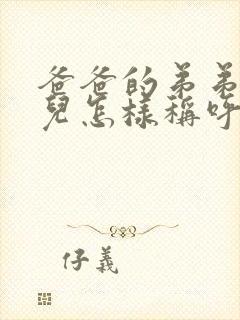 爸爸的弟弟
兒怎樣稱呼
仔義